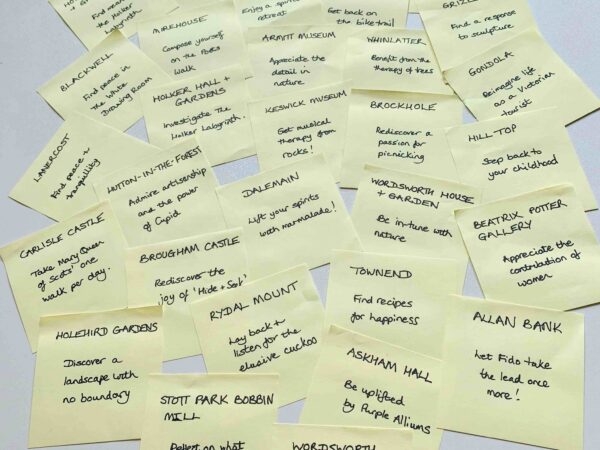 Find peace in
the Holker
Labyrinth
MIREHOUSE
Compose yourself
on the Poets
Walk
Enjoy a
retreat
Get back on
the bike trail
GRIZE
Find a response
to sculpture
BLACKWELL
Find peace in
the White
Drawing Room
HOLKER HALL +
GARDENS
Investigate the
Holker Labyrinth.
ARMITT MUSEUM
Appreciate the
detail in
nature
WHINLATTER
Benefit from the
therapy of trees
GONDOLA
Reimagine life
as a Victorian
tourist
LANERCOST
Find peace +
tranquillity
HUTTON-IN-THE-FOREST
Admire artisanship
and the power
of Cupid
KESWICK MUSEUM
Get musical
therapy from
rocks!
BROCKHOLE
Rediscover a
passion for
picnicking
HILL TOP
Step back to
your childhood
CARLISLE CASTLE
Take Mary Queen
of Scots' one
walk per day.
BROUGHAM CASTLE
Rediscover the
joy of 'Hide + Seek'
DALEMAIN
Lift your spirits
with marmalade!
WORDSWORTH HOUSE
+ GARDEN
Be in-tune with
nature
BEATRIX POTTER
GALLERY
Appreciate the
contribution of
women
HOLEHIRD GARDENS
Discover a
landscape with
no boundary
RYDAL MOUNT
Lay back +
listen for the
elusive cuckoo
TOWNEND
Find recipes
for happiness
ALLAN BANK
Let Fido take
the lead once
more!
STOTT PARK BOBBIN
MILL
Reflect on what
ASKHAM HALL
Be uplifted
by Purple Alliums
WORDSWORTH